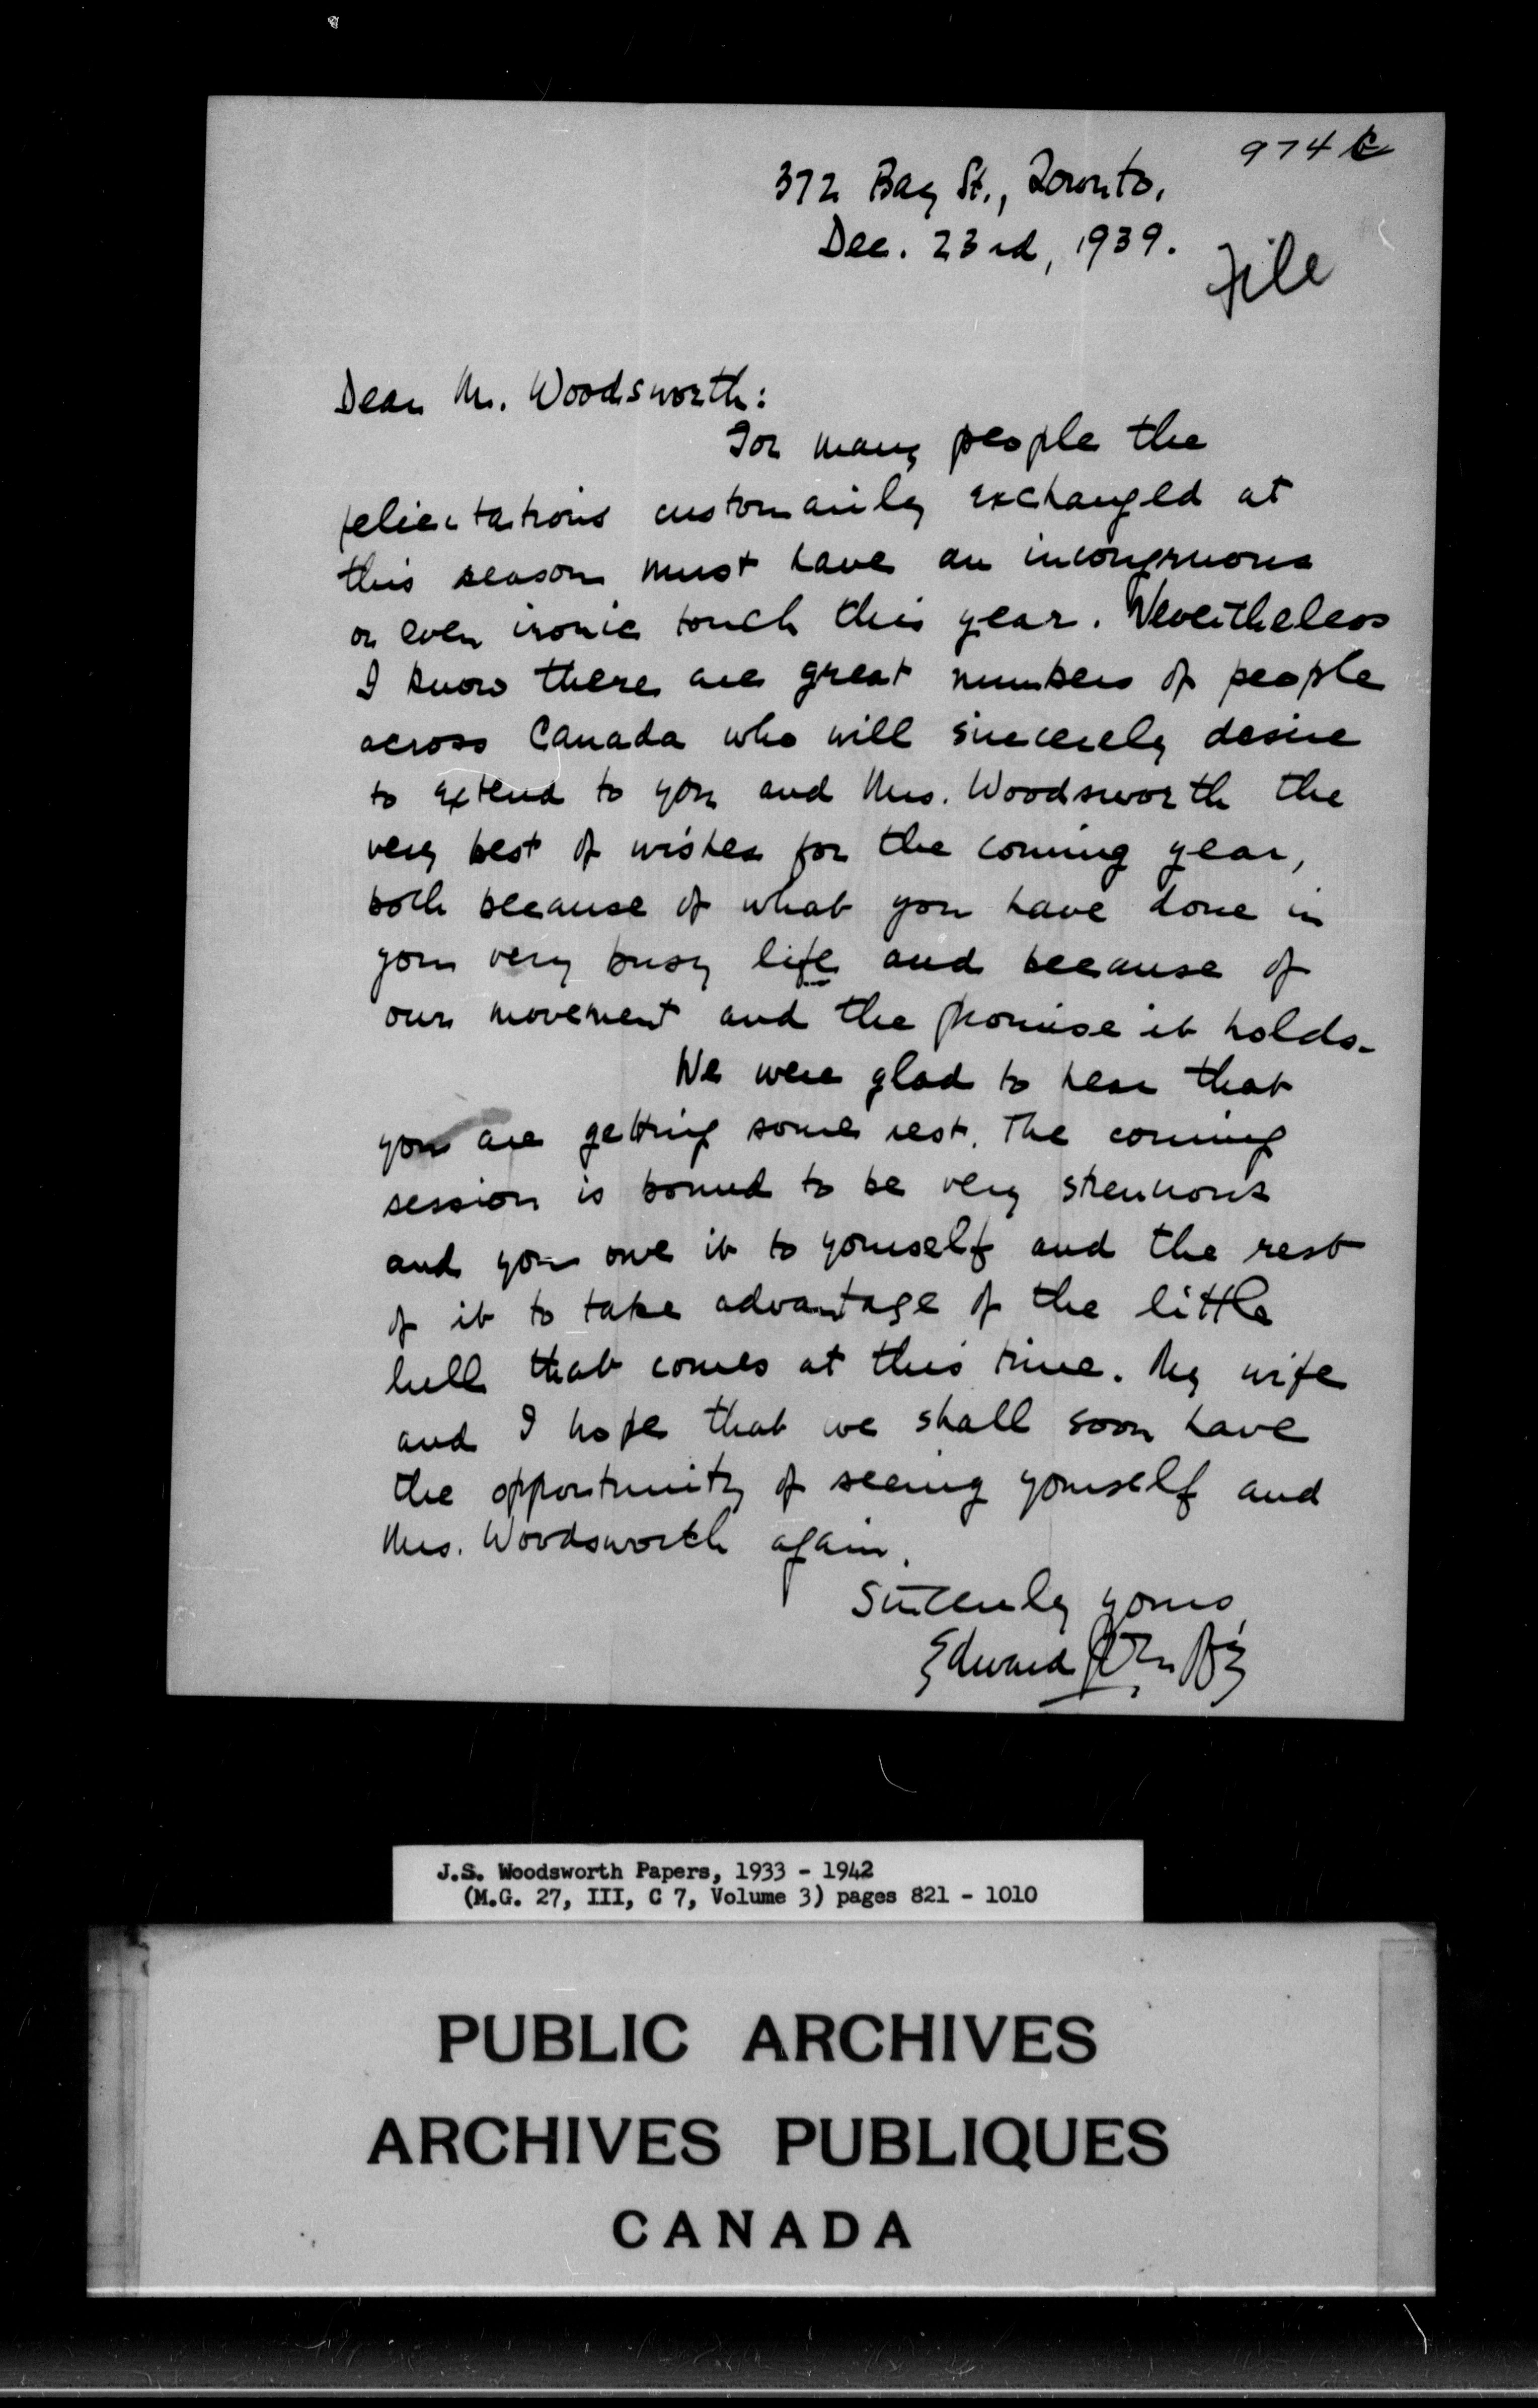 974 C
372 Bay St., Toronto,
Dec. 23rd, 1939.
File
Dear Mr. Woodsworth:
For many people the
felicitations customarily exchanged at
this season must have an incongruous
or even ironic touch this year. Nevertheless
I know there are great numbers of people
across Canada who will sincerely desire
to extend to you and Mrs. Woodsworth the
very best of wishes for the coming year,
both because of what you have done in
your very busy life and because of
our movement and the promise it holds.
We were glad to hear that
you are getting some rest. The coming
session is bound to be very strenuous
and you owe it to yourself and the rest
of it to take advantage of the little
lull that comes at this time. My wife
and I hope that we shall soon have
the opportunity of seeing yourself and
Mrs. Woodsworth again.
Sincerely yours,
Edward
J.S. Woodsworth Papers, 1933 - 1942
(M.G. 27, III, C 7, Volume 3) pages 821 - 1010
PUBLIC ARCHIVES
ARCHIVES PUBLIQUES
CANADA